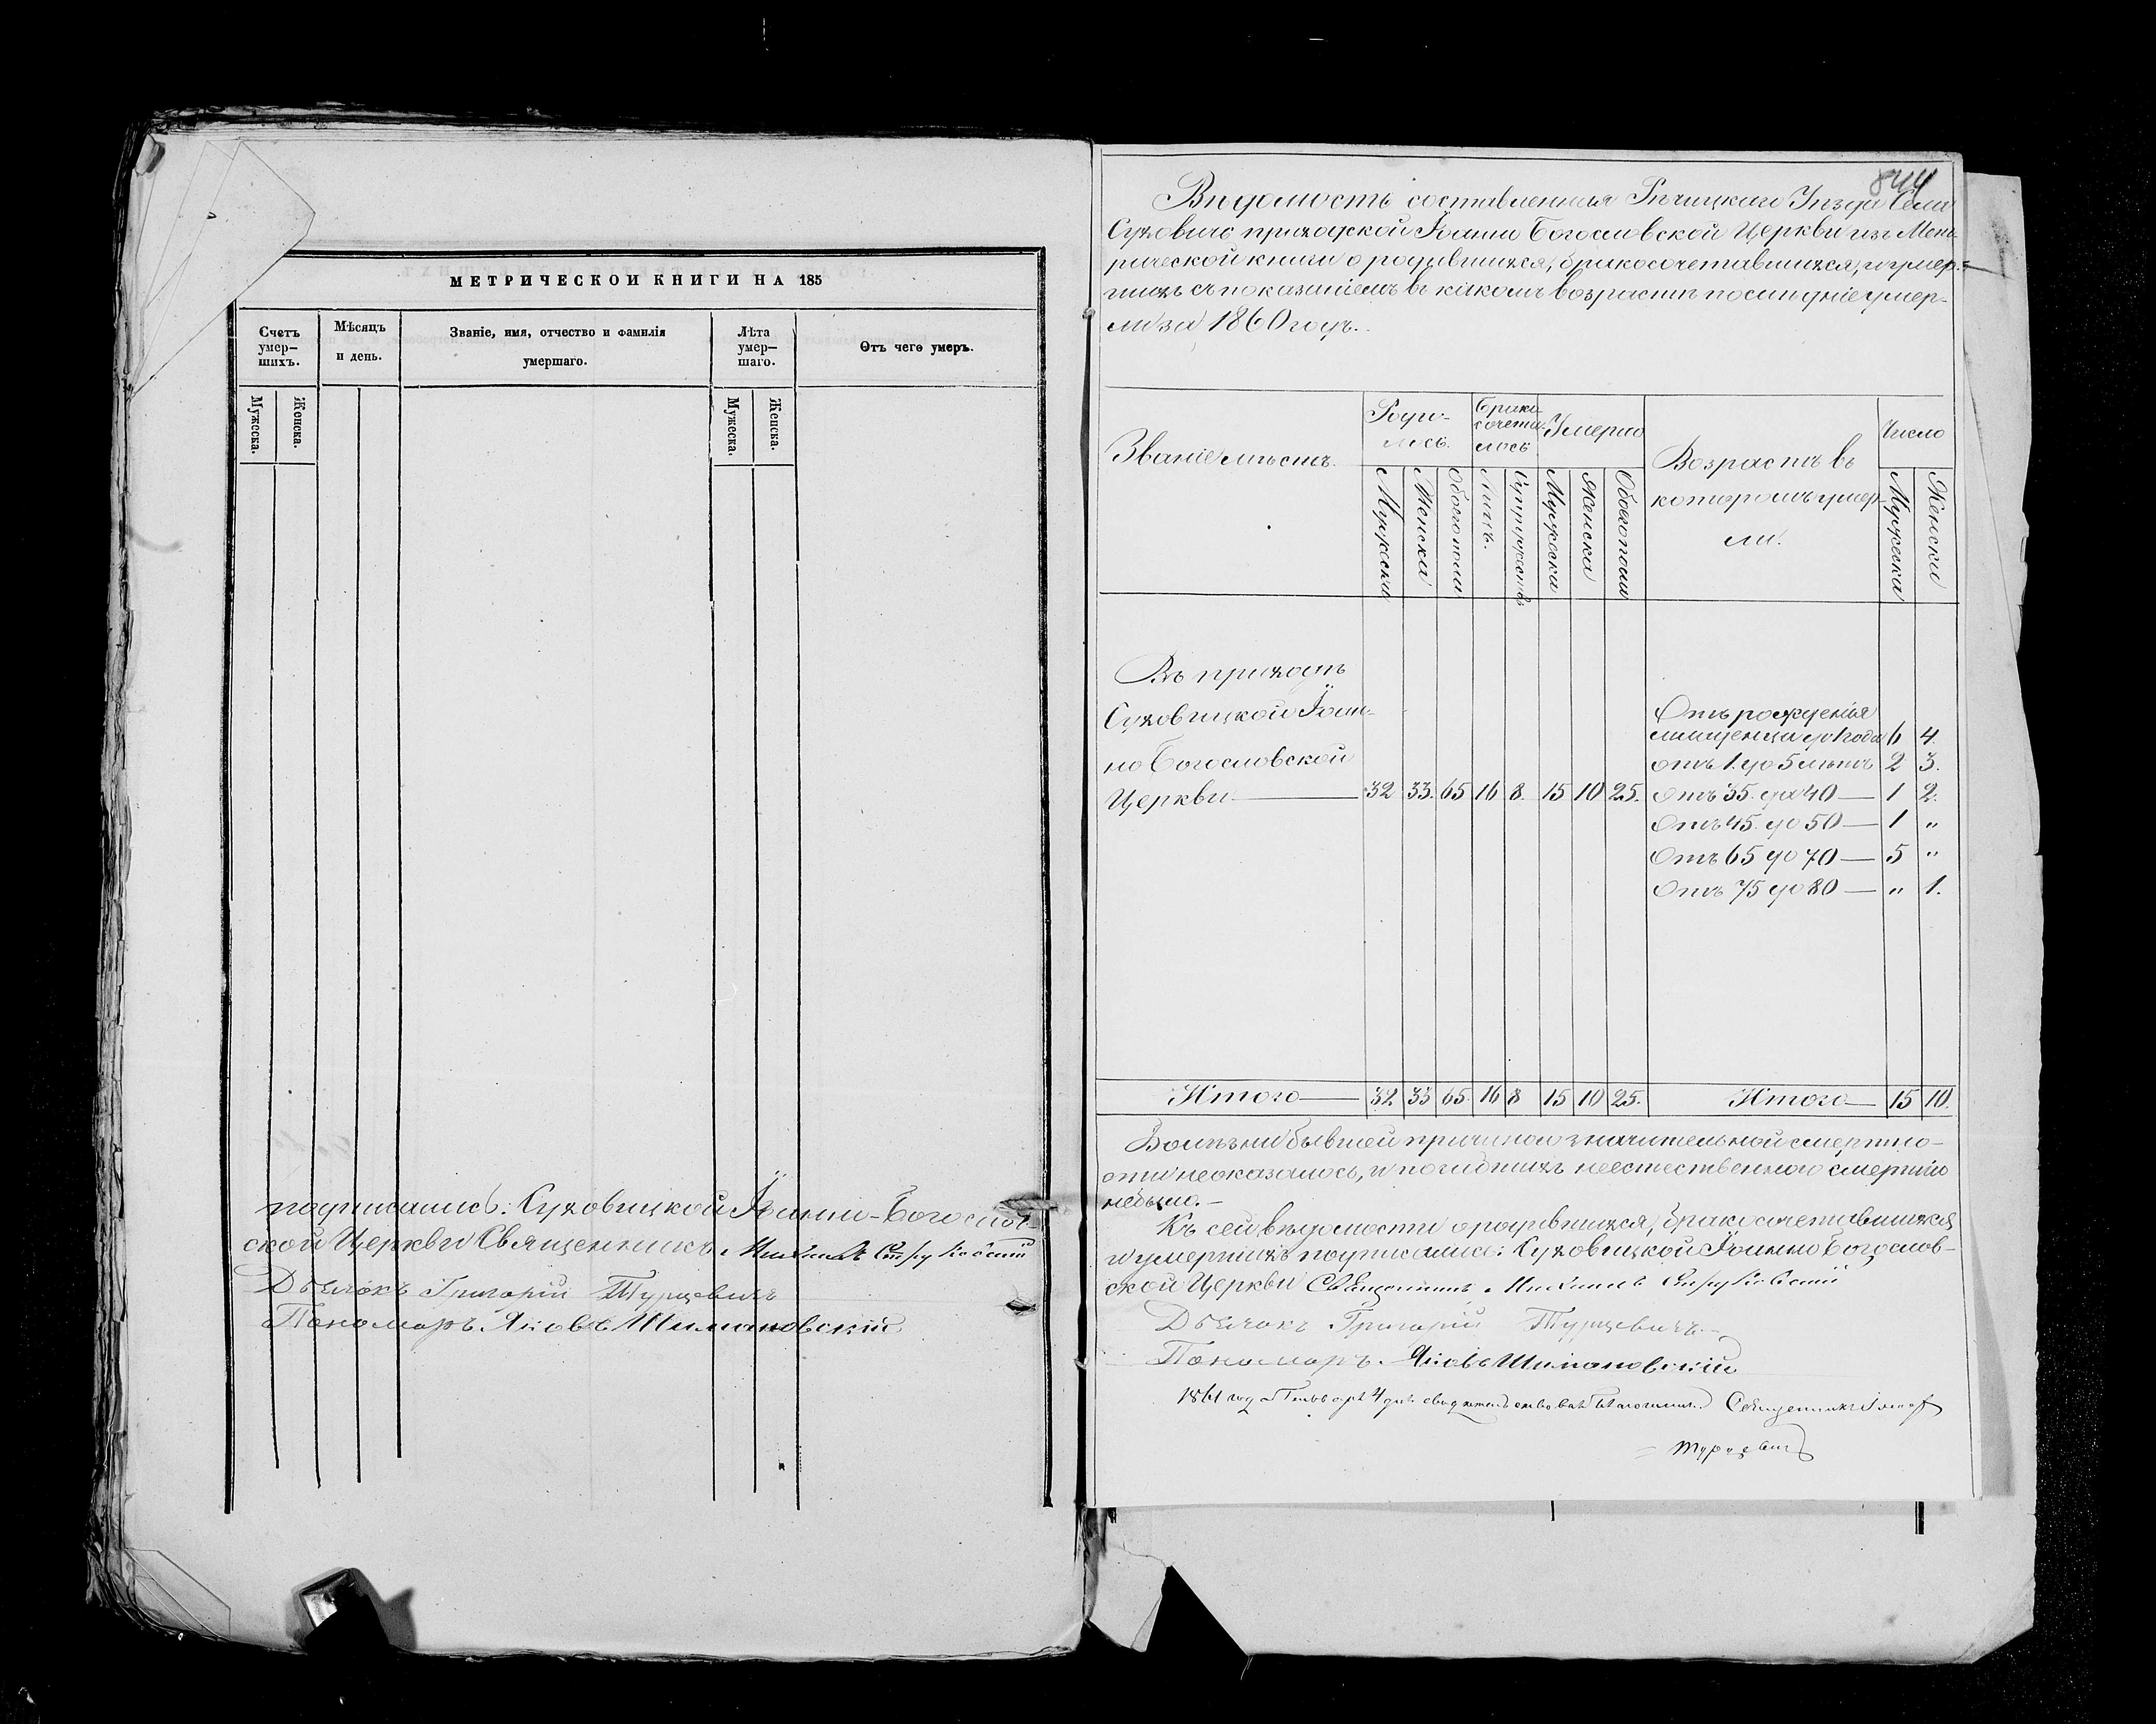 МЕТРИЧЕСКОЙ КНИГИ НА 185
Счетъ умер–шихъ.
Мѣсяцъ и день.
Званіе, имя, отчество и фамилія умершаго.
Лѣта умер–шаго.
Отъ чего умеръ.
Мужеска.
Женска.
Мужеска.
Женска.
подписались: Суховицкой Іоанно-Богослов-
ской Церкви Священникъ Михаилъ
Дьячокъ Григорій Турцевичъ
Пономаръ Яковъ Шимановскій
844
Вѣдомость составленная Рѣчицкаго Уѣзда Села
Суховичъ приходской Іоанно Богословской Церкви изъ Мет-
рической книги о родившихся, бракосочетавшихся, и умер-
шихъ съ показаніемъ въ какомъ возрастѣ послѣдніе умер-
ли за 1860 годъ.
Званіе мѣстъ.
Роди-
лось.
Брако
сочета-
лось
Умерло
Возрастъ въ
которомъ умер-
ли.
Число
Мужеска
Женска
Обоего пола
Лицъ.
Супружествъ
Мужеска
Женска
Обоего пола
Мужеска
Женска
Въ приходѣ
Суховицкой Іоан-
но Богословской
Церкви — 32 33. 65 16 8. 15 10 25.
Отъ рожденія
младенца до 1 года 6 4.
отъ 1. до 5 лѣтъ 2 3.
Отъ 35. до 40 — 1 2.
Отъ 45. до 50 — 1 "
Отъ 65 до 70 — 5 "
Отъ 75 до 80 — " 1.
Итого — 32 33 65 16 8 15 10 25. Итого — 15 10.
Болѣзни бывшей причиною значительной смертно-
сти неоказалось, и погибшихъ неестественною смертію
небыло. –
Къ сей вѣдомости о родившихся, бракосочетавшихся
и умершихъ подписались: Суховицкой Іоанно Богослов-
ской Церкви Священникъ Михаилъ
Дьячокъ Григорій Турцевичъ
Пономаръ. Яковъ Шимановскій
1861 года Генваря 4 дня свидѣтельствовалъ Благочинный Священникъ
Турцевичъ